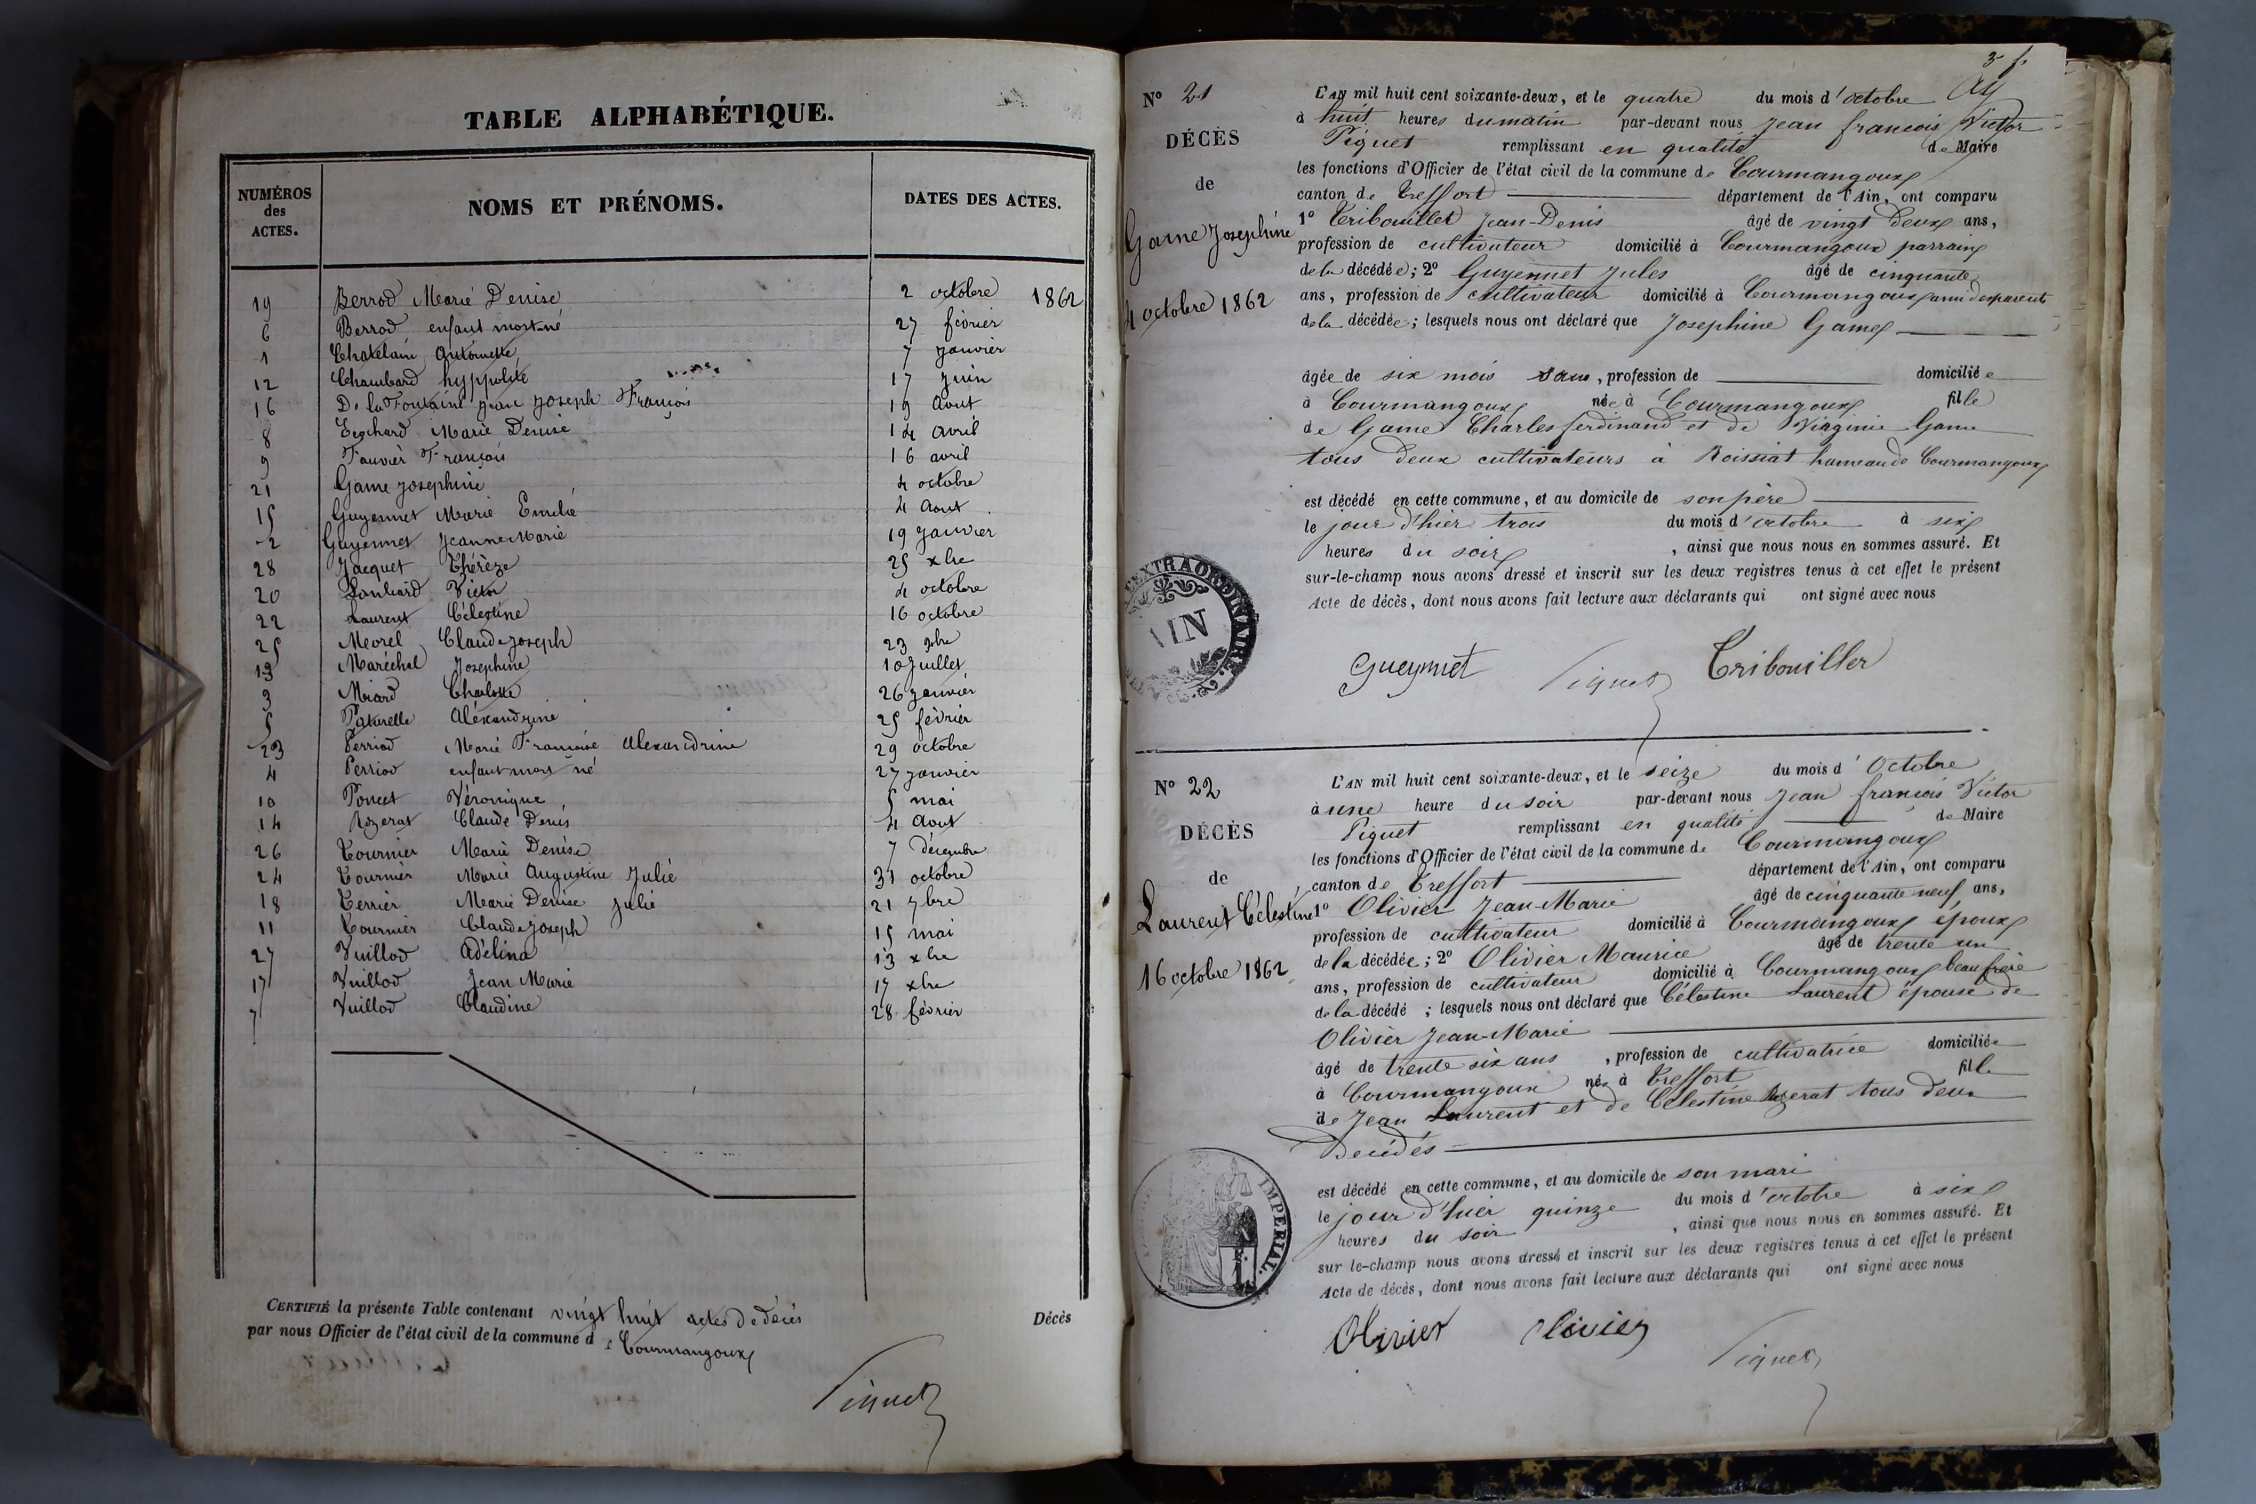 TABLE ALPHABÉTIQUE.
NUMÉROS des ACTES. NOMS ET PRÉNOMS. DATES DES ACTES.
19 Berrod Marie Denise 2 octobre 1862
6 Berrod enfant mort-né 27 février
1 Chatelain Antoinette 7 janvier
12 Chambard hyppolite 17 juin
16 De la Fontaine jean joseph François 19 aout
8 Marie Denise 14 avril
9 Fauvier François 16 avril
21 Game josephine 4 octobre
15 Guyennet Marie Emilie 4 aout
2 Guyennet Jeanne Marie 19 janvier
28 Jacquet Thérèze 25 xbre
20 Victor 4 octobre
22 Laurent Célestine 16 octobre
25 Morel Claude joseph 23 9bre
13 Maréchal Joséphine 10 juillet
3 Miard Charlotte 26 janvier
5 Paturelle aléxandrine 25 février
23 Perriod Marie Françoise alexandrine 29 octobre
4 Perriod enfant mort né 27 janvier
10 Poncet Véronique 5 mai
14 Rozerat Claude Denis 4 aout
26 Tournier Marie Denise 7 décembre
24 Tournier Marie Augustine Julie 31 octobre
18 Terrier Marie Denise Julie 21 7bre
11 Tournier Claude joseph 15 mai
27 Vuillod Adélina 13 xbre
17 Vuillod Jean Marie 17 xbre
7 Vuillod Claudine 28 février
CERTIFIÉ la présente Table contenant vingt huit actes de décès Décès
par nous Officier de l'état civil de la commune de Courmangoux
Piquet
3 f.
N° 21
DÉCÈS
de
Game Josephine
4 octobre 1862
L'AN mil huit cent soixante-deux, et le quatre du mois d'octobre
à huit heures du matin par-devant nous Jean françois Victor
Piquet remplissant en qualité de Maire
les fonctions d'Officier de l'état civil de la commune de Courmangoux
canton de Treffort département de l'Ain, ont comparu
1° Tribouillet Jean-Denis âgé de vingt deux ans,
profession de cultivateur domicilié à Courmangoux parrain
de la décédée; 2° Guyennet Jules âgé de cinquante
ans, profession de cultivateur domicilié à Courmangoux ami des parents
de la décédée; lesquels nous ont déclaré que Josephine Game
âgée de six mois ans, profession de domiciliée
à Courmangoux née à Courmangoux fille
de Game Charles ferdinand et de Virginie Game
tous deux cultivateurs à Roissiat hameau de Courmangoux
est décédé en cette commune, et au domicile de son père
le jour d'hier trois du mois d'octobre à six
heures du soir, ainsi que nous nous en sommes assuré. Et
sur-le-champ nous avons dressé et inscrit sur les deux registres tenus à cet effet le présent
Acte de décès, dont nous avons fait lecture aux déclarants qui ont signé avec nous
EXTRAORDINAIRE
AIN
Gueynnet Piquet Tribouiller
N° 22
DÉCÈS
de
Laurent Célestine
16 octobre 1862
L'AN mil huit cent soixante-deux, et le seize du mois d'Octobre
à une heure du soir par-devant nous Jean françois Victor
Piquet remplissant en qualité de Maire
les fonctions d'Officier de l'état civil de la commune de Courmangoux
canton de Treffort département de l'Ain, ont comparu
1° Olivier Jean-Marie âgé de cinquante neuf ans,
profession de cultivateur domicilié à Courmangoux époux
de la décédée; 2° Olivier Maurice âgé de trente un
ans, profession de cultivateur domicilié à Courmangoux beau frère
de la décédé; lesquels nous ont déclaré que Célestine Laurent épouse de
Olivier Jean-Marie
âgé de trente six ans, profession de cultivatrice domiciliée
à Courmangoux née à Treffort fille
de Jean Laurent et de Célestine Rozerat tous deux
Décédés
est décédé en cette commune, et au domicile de son mari
le jour d'hier quinze du mois d'octobre à six
heures du soir, ainsi que nous nous en sommes assuré. Et
sur le-champ nous avons dressé et inscrit sur les deux registres tenus à cet effet le présent
Acte de décès, dont nous avons fait lecture aux déclarants qui ont signé avec nous
IMPERIAL.
Olivier Olivier Piquet